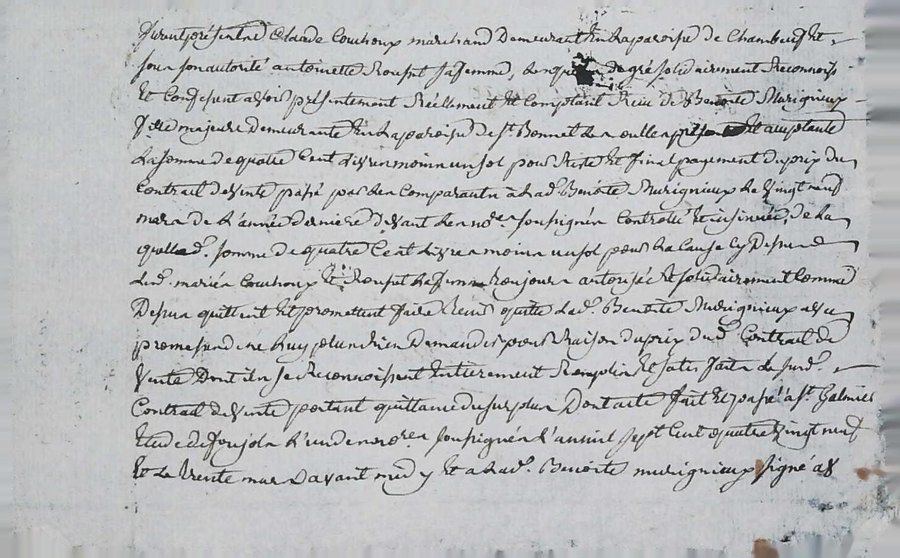 furent présent Claude Couchoux marchand demeurant En la paroisse de Chambeuf Et
sous son autorité antoinette Rousset sa femme, de gré solidairement Reconnoiss
Et Confessent avoir présentement Réellement Et Comptant Reçu de Benoite Murigneux
fille majeure demeurante En la paroisse de St Bonnet Les oulles présente Et acceptante
La somme de quatre Cent livres moins un sol pour Reste Et final payement du prix du
Contrait de Vente passé par les Comparants à lad. Benoite Murigneux le Vingt neuf
mars de L'année dernière devant Les nores soussignés Controllé Et insinué, de la
quelle d. somme de quatre Cent livres moins un sol pour la Cause Cy dessus
Lesd. mariés Couchoux Et Rousset la femme toujours autorisée Et solidairement Comme
Dessus quittent Et promettent faire tenir quitte Lad. Benoite Murigneux avec
promesse de ne luy plus Rien Demander pour Raison du prix dud. Contrait de
Vente Dont ils se Reconnoissent Entierement Remplis Et satisfaits le susd.
Contrait de Vente portant quittance du surplus Dont acte fait Et passé à St. Galmier
Etude de Joujols L'un de nores soussignés L'an mil sept Cent quatre Vingt neuf
Et Le trente mars avant midy Et a lad. Benoite murigneux signé av